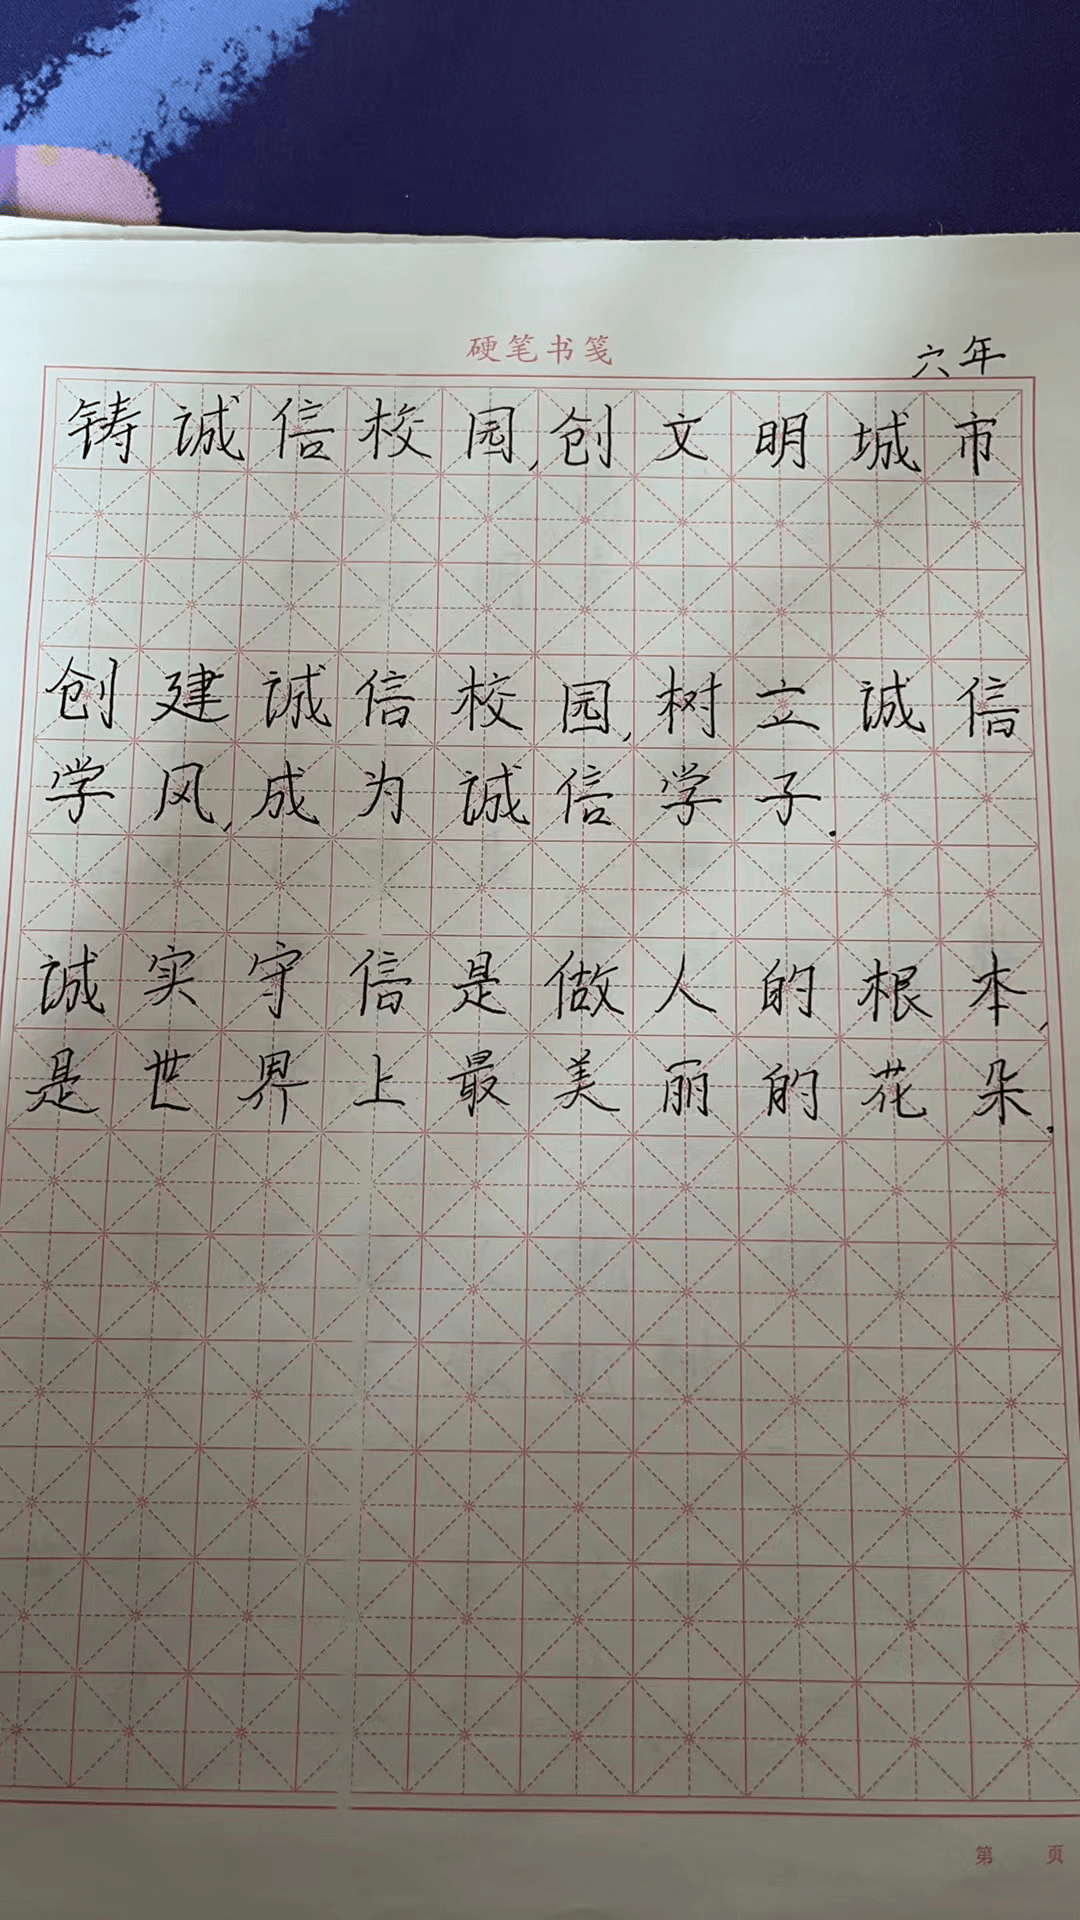 硬笔书笺
六年
铸诚信校园,创文明城市
创建诚信校园,树立诚信
学风,成为诚信学子.
诚实守信是做人的根本,
是世界上最美丽的花朵.
第 页